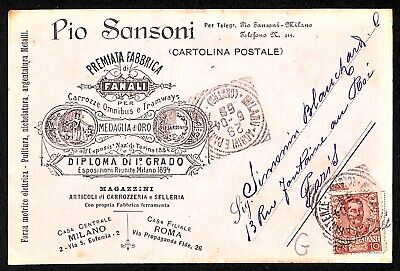 Pio Sansoni
Per Telegr. Pio Sansoni - Milano
Telefono N. 211.
(CARTOLINA POSTALE)
PREMIATA FABBRICA
di
FANALI
PER
Carrozze Omnibus e Tramways
MEDAGLIA d'ORO
all'Esposiz. Naz. di Torino
DIPLOMA DI Iº GRADO
Esposizioni Riunite Milano 1894
MAGAZZINI
ARTICOLI DI CARROZZERIA e SELLERIA
Con propria Fabbrica ferramenta
CASA CENTRALE
MILANO
2 - Via S. Eufemia - 2
CASA FILIALE
ROMA
Via Propaganda Fide, 26
Forza motrice elettrica - Pulitura, nichelatura, argentatura Metalli.
MILANO
Sig. Simonin Blanchard
13 Rue Fontaine au Roi
Paris
G
10